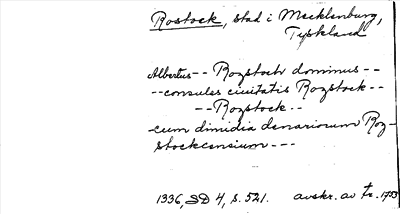 Rostock, stad i Mecklenburg,
Tyskland
Albertus -- Rozstoch dominus --
-- consules ciuitatis Rozstock --
-- Rozstock --
-cum dimidia denariorum Roz-
stockcensium ---
1336, SD 4, s. 521. avskr. av